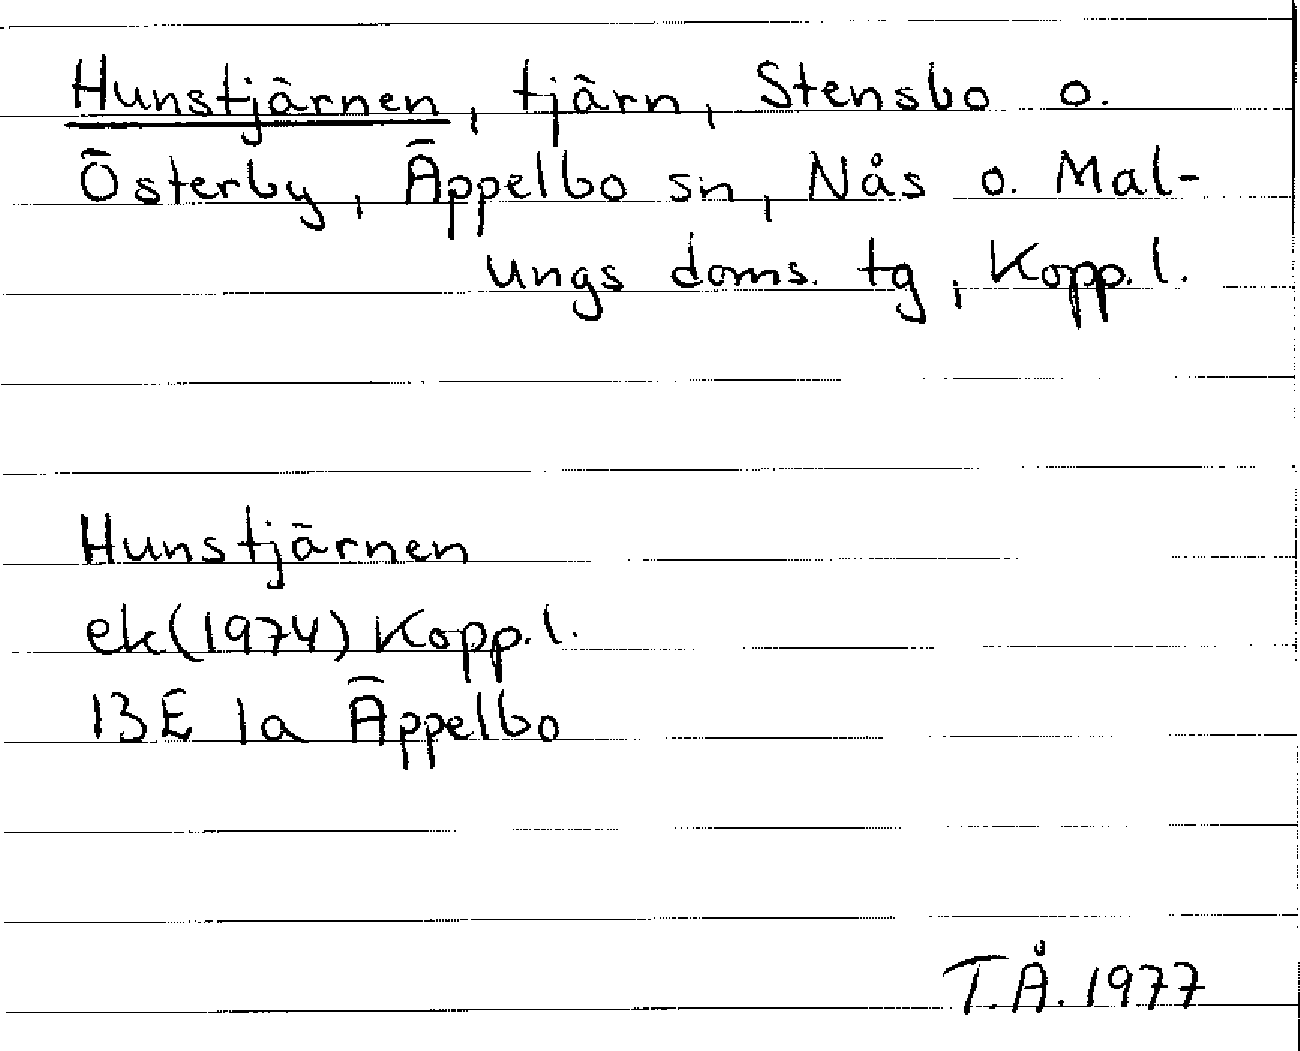 Hunstjärnen, tjärn, Stensbo o.
Österby, Äppelbo sn, Nås o. Mal-
ungs doms. tg, Kopp. l.
Hunstjärnen
ek (1974) Kopp. l.
13E 1a Äppelbo
T.Å. 1977